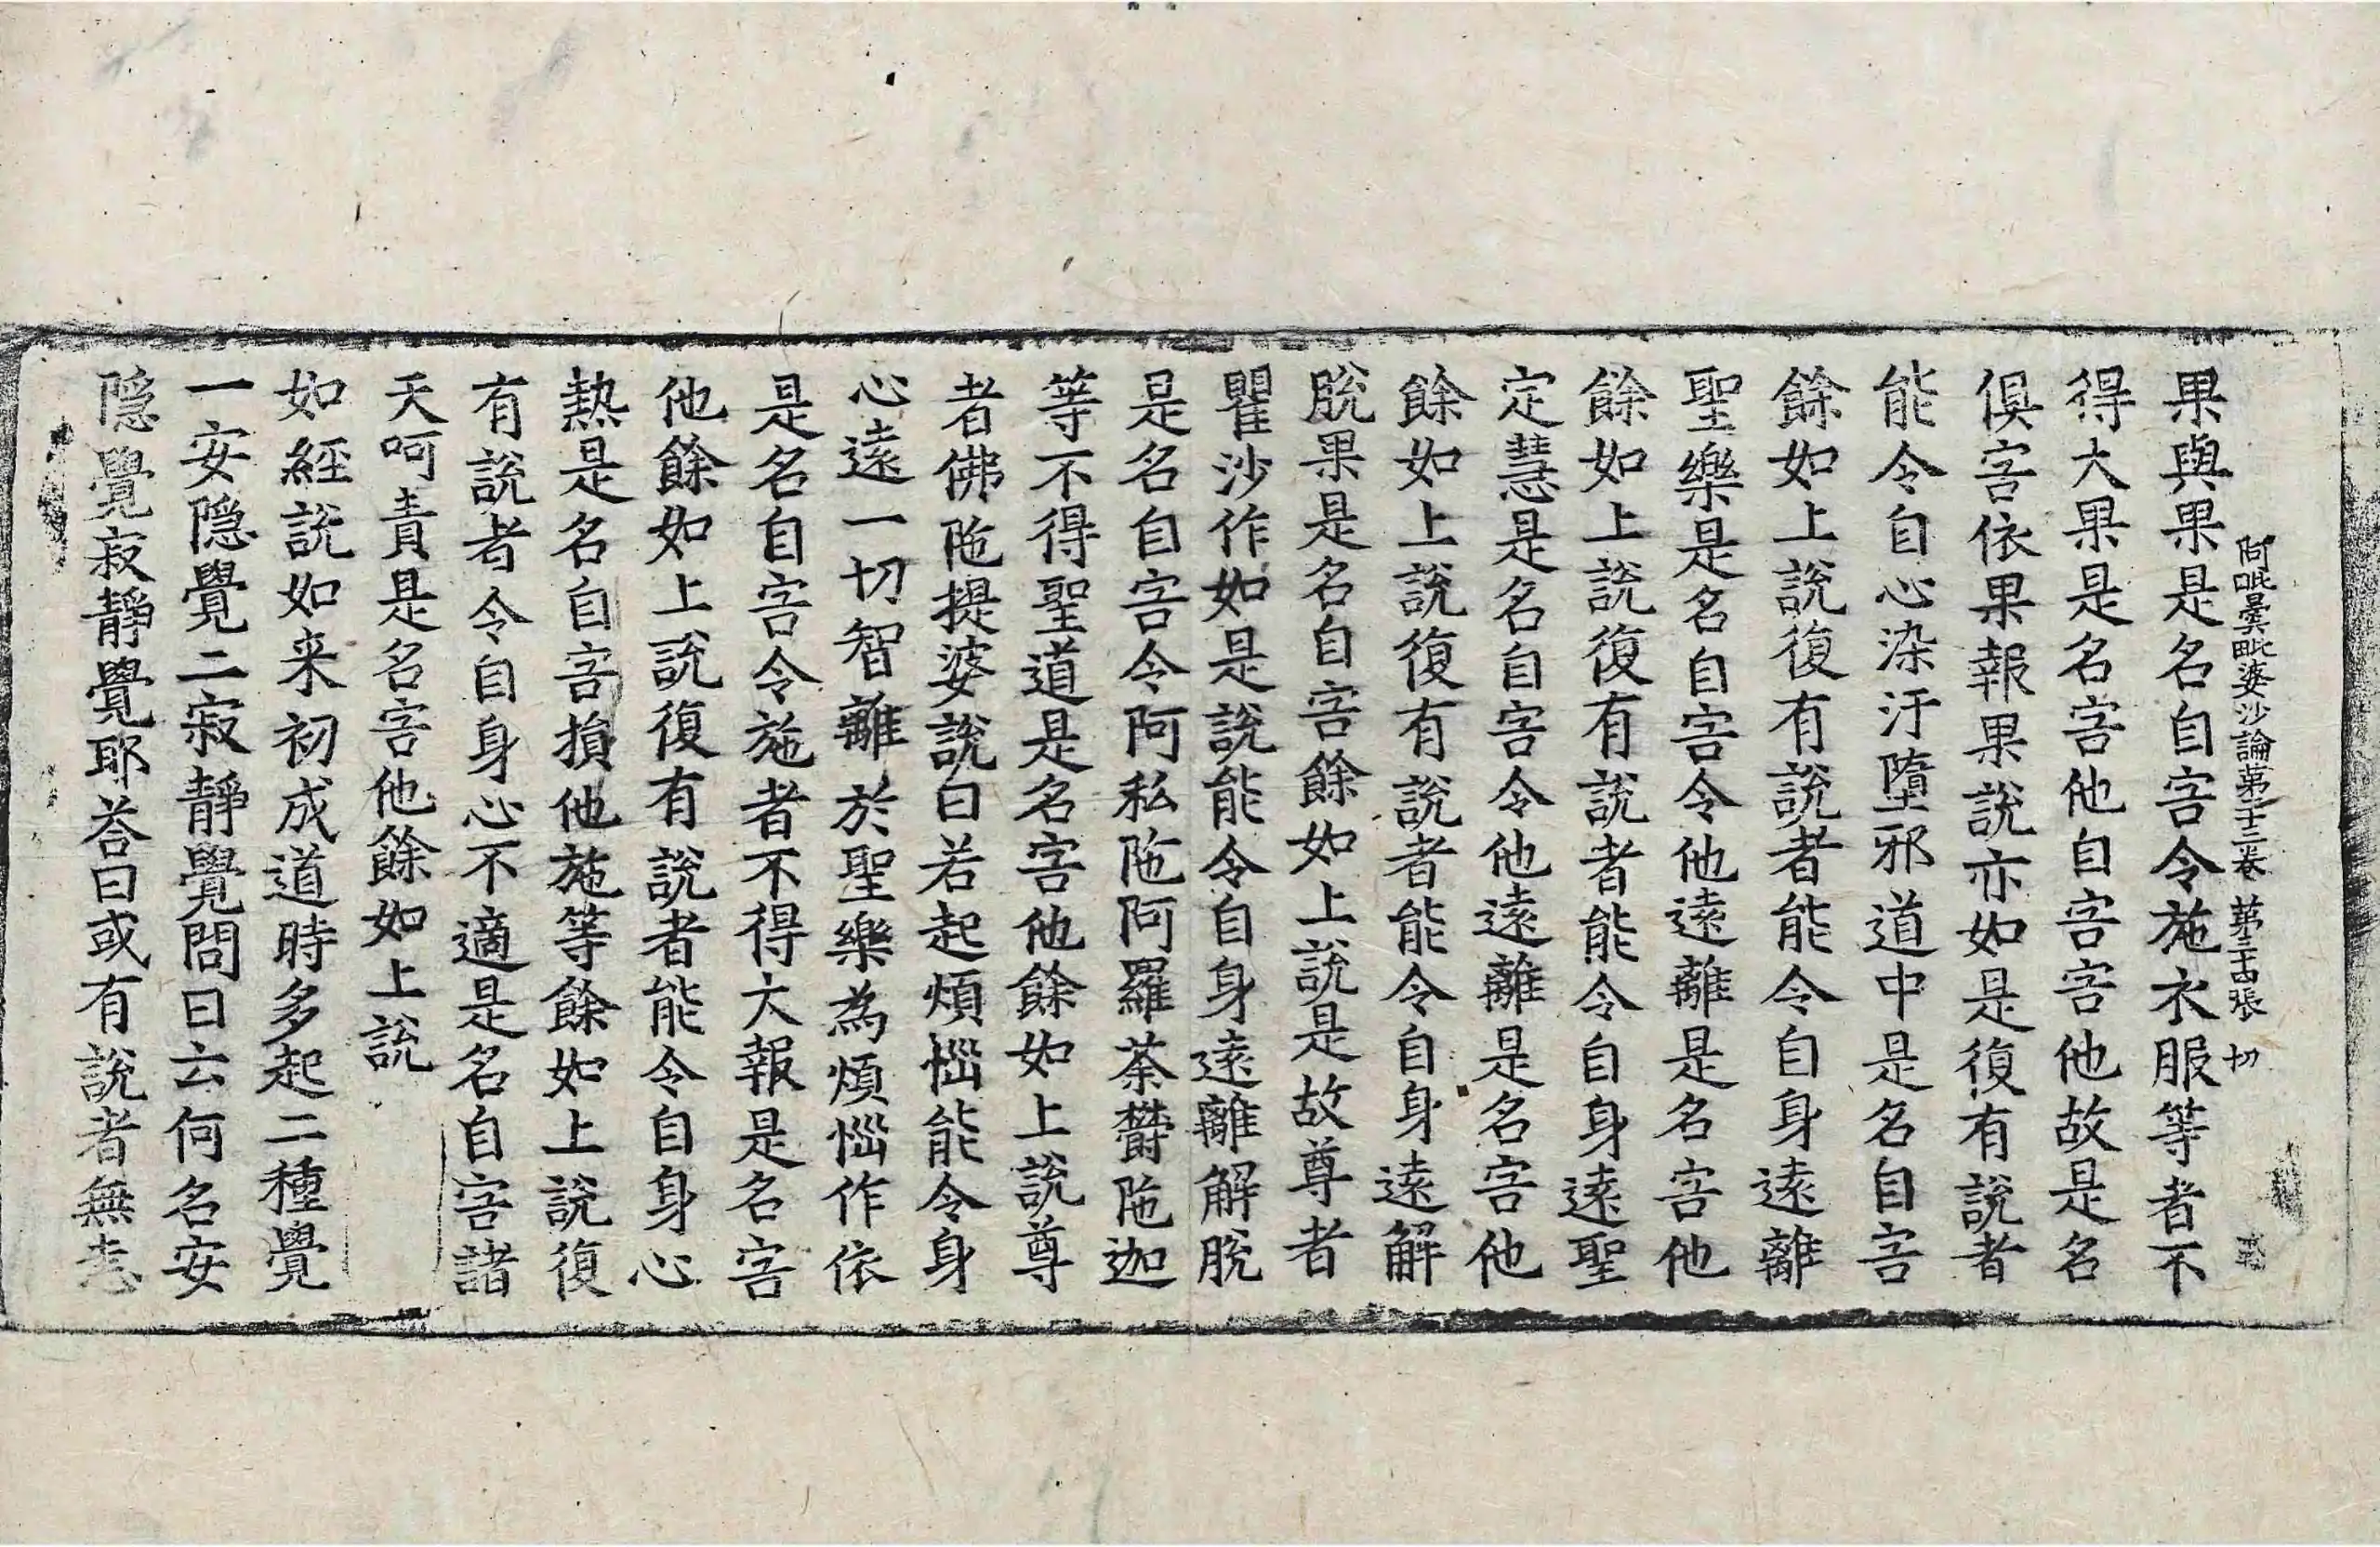 阿毗曇毗婆沙論第二十三卷 第三十四張 切
果與果是名自害令施衣服等者不
得大果是名害他自害害他故是名
俱害依果報果說亦如是復有說者
能令自心染汙墮邪道中是名自害
餘如上說復有說者能令自身遠離
聖樂是名自害令他遠離是名害他
餘如上說復有說者能令自身遠聖
定慧是名自害令他遠離是名害他
餘如上說復有說者能令自身遠解
脫果是名自害餘如上說是故尊者
瞿沙作如是說能令自身遠離解脫
是名自害令阿私陁阿羅荼欝陁迦
等不得聖道是名害他餘如上說尊
者佛陁提婆說曰若起煩惱能令身
心遠一切智離於聖樂為煩惱作依
是名自害令施者不得大報是名害
他餘如上說復有說者能令自身心
熱是名自害損他施等餘如上說復
有說者令自身心不適是名自害諸
天呵責是名害他餘如上說
如經說如来初成道時多起二種覺
一安隱覺二寂靜覺問曰云何名安
隱覺寂靜覺耶荅曰或有說者無恚